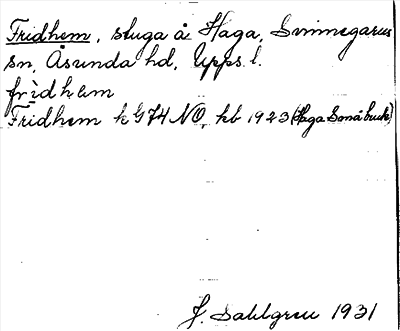 Fridhem, stuga å Haga, Svinnegarns
sn, Åsunda hd, Upps. l.
fridhem
Fridhem k G74 NO, kb 1923 (Haga Småbruk)
J. Sahlgren 1931